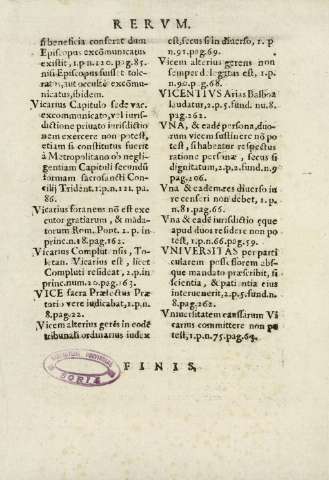 RERVM.
si beneficia conferat dum
Episcopus excōmunicatus
existit, 1.p.n.120.pag.85.
nisi Episcopus fuisset tole-
ratus, aut occulte excōmu-
nicatus, ibidem.
Vicarius Capitulo sede vac.
excommunicato, vel iuris-
dictione priuato iurisdictio-
nem exercere non potest,
etiam si constitutus fuerit
à Metropolitano ob negli-
gentiam Capituli secundū
formam sacrosancti Con-
cilij Trident. 1.p.n.121. pa.
86.
Vicarius foraneus nō est exe-
cutor gratiarum, & māda-
torum Rom. Pont. 2.p. in
princ.n.18.pag.162.
Vicarius Complutensis, To-
letan. Vicarius est, licet
Compluti resideat, 2.p.in
princ.num.20.pag.163.
VICE sacra Præfectus Præ-
torio vere iudicabat, 1.p.n.
8.pag.22.
Vicem alterius gerēs in eodē
tribunali ordinarius iudex
est, secus si in diuerso, 1.p
n.91.pag.69.
Vicem alterius gerens non
semper delegatus est, 1.p.
n.90.p.g.68.
VICENTIVS Arias Balboa
laudatur, 2.p.5.fund.nu.8.
pag.262.
VNA, & eadē persona, duo-
rum vicem sustinere nō po
test, si habeatur respectus
ratione personæ, secus si
dignitatum, 2.p.2.fund.n.9
pag.206.
Vna & eadem res diuerso iu-
re censeri non debet, 1.p.
n.81.pag.66.
Vna & eadē iurisdictio eque
apud duos residere non po
test, 1.p.n.66.pag.59.
VNIVERSITAS per parti
cularem possessorem abs-
que mandato præscribit, si
scientia, & patientia eius
interuenerit, 2.p.5.fund.n.
8.pag.262.
Vniuersitatem caussarum Vi
carius committere non po
test, 1.p.n.75.pag.64.
FINIS.
SORIA